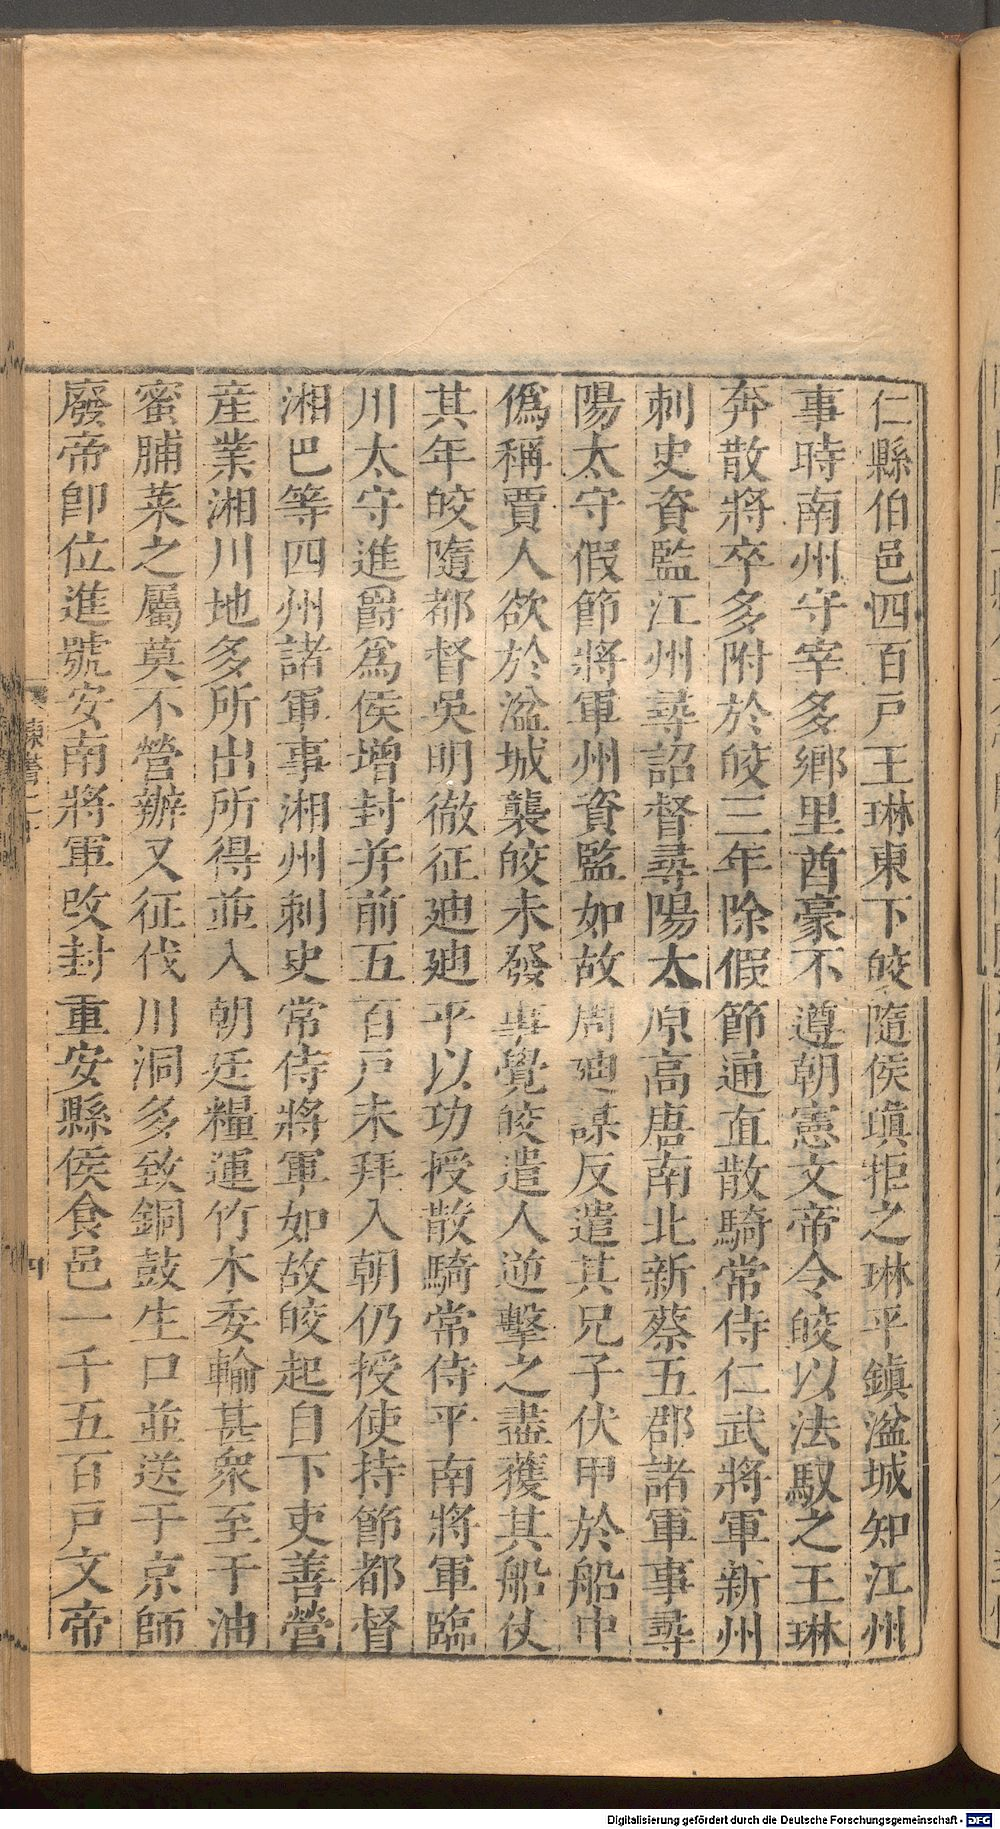 仁縣伯邑四百戸王琳東下皎隨侯瑱拒之琳平鎮湓城知江州
事時南州守宰多鄉里酋豪不遵朝憲文帝令皎以法馭之王琳
奔散將卒多附於皎三年除假節通直散騎常侍仁武將軍新州
刺史資監江州尋詔督尋陽太原高唐南北新蔡五郡諸軍事尋
陽太守假節將軍州資監如故周廸謀反遣其兄子伏甲於船中
僞稱賈人欲於湓城襲皎未發事覺皎遣人逆擊之盡獲其船仗
其年皎隨都督吳明徹征廸廸平以功授散騎常侍平南將軍臨
川太守進爵爲侯增封并前五百戸未拜入朝仍授使持節都督
湘巴等四州諸軍事湘州刺史常侍將軍如故皎起自下吏善營
産業湘川地多所出所得並入朝廷糧運竹木委輸甚衆至于油
蜜脯菜之屬莫不營辦又征伐川洞多致銅鼓生口並送于京師
廢帝卽位進號安南將軍改封重安縣侯食邑一千五百戸文帝
四
Digitalisierung gefördert durch die Deutsche Forschungsgemeinschaft - DFG